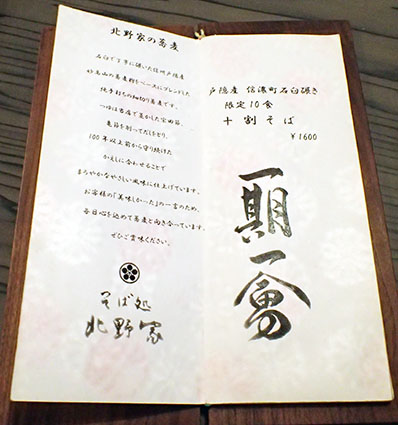 北野家の蕎麦
石臼で丁寧に挽いた信州戸隠産
妙高山の蕎麦粉をベースにブレンドした
純手打ちの細切り蕎麦です。
つゆは当店で蒸かした宗田節、
亀節を削ってだしをとり、
100年以上前から守り続けた
かえしに合わせることで
まろやかなやさしい風味に仕上げています。
お客様の「美味しかった」の一言のため、
毎日心を込めて蕎麦と向き合っています。
ぜひご賞味ください。
そば処
北野家
戸隠産 信濃町石臼碾き
限定10食
十割そば
¥1600
一期一會